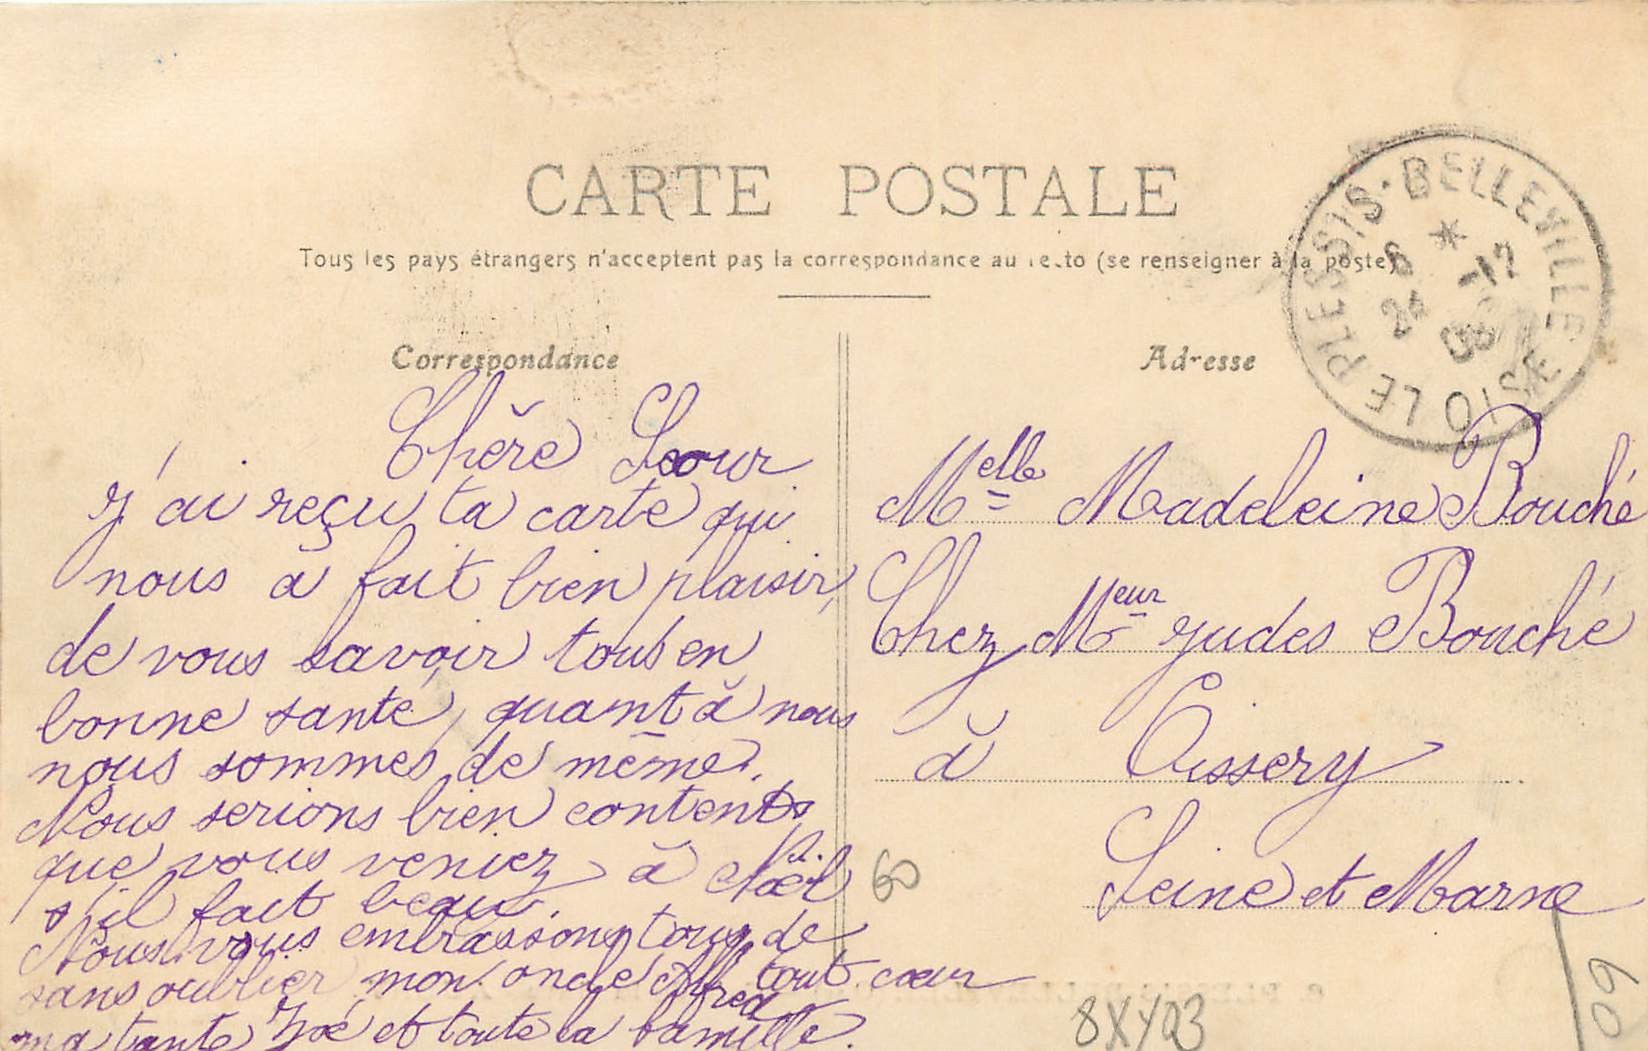 CARTE POSTALE
Tous les pays étrangers n'acceptent pas la correspondance au recto (se renseigner à la poste)
Correspondance
Chère Soeur
J'ai reçu ta carte qui
nous a fait bien plaisir,
de vous savoir tous en
bonne santé, quant à nous
nous sommes de même.
Nous serions bien contents
que vous veniez à Noël
s'il fait beau.
Nous vous embrassons tous de
tout cœur
sans oublier mon oncle Alfred
ma tante Zoé et toute la famille.
Adresse
Melle Madeleine Bouché
Chez Meur Judes Bouché
à Oissery
Seine et Marne
LE PLESSIS-BELLEVILLE
OISE
6 * 24 -12
60
8XYQ3
60